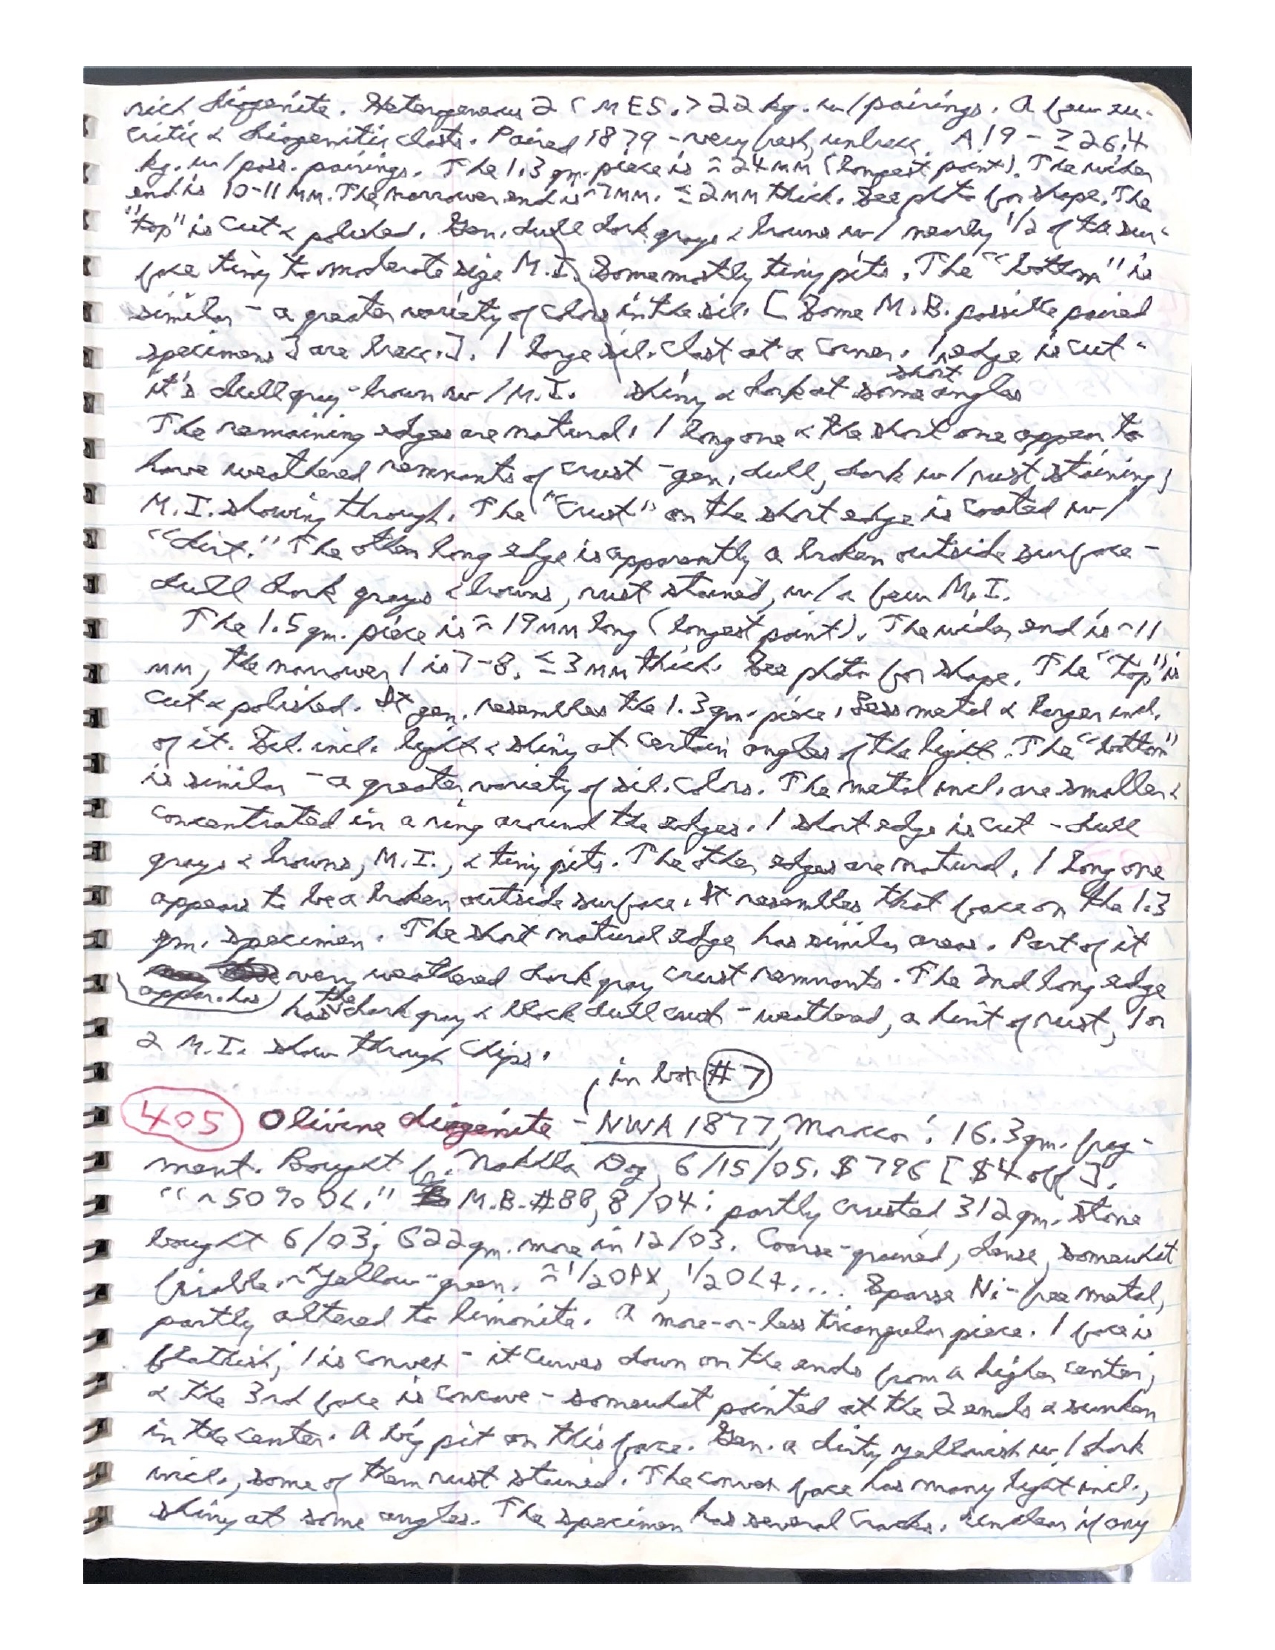 rich diogenite. Heterogeneous 2 ( MES. > 22 kg. w/pairings. A few eu-
critic & diogenitic clasts. Paired 1879 - very fresh, unbrecc. A!9 - ≥ 26.4
kg. w/poss. pairings. The 1.3 gm. piece is ≈ 24MM (longest point). The wider
end is 10-11 MM. The narrower end is ~7MM. ≤2MM thick. See photo for shape. The
"top" is cut & polished. Gen. dull dark grays & browns w/ nearly 1/2 of the sur-
face tiny to moderate size M.I. Some mostly tiny pits. The "bottom" is
similar - a greater variety of colors in the sil. [ Some M.B. possible paired
specimens are brecc.]. 1 large sil. clast at a corner. 1 short edge is cut -
it's dull gray-brown w/M.I. shiny & dark at some angles
The remaining edges are natural. 1 long one & the short one appear to
have weathered remnants of crust - gen. dull, dark w/ rust staining;
M.I. showing through. The "crust" on the short edge is coated w/
"dirt." The other long edge is apparently a broken outside surface -
dull dark grays & browns, rust stained, w/ a few M.I.
The 1.5 gm. piece is ≈ 19MM long (longest point). The wider end is ~11
MM, the narrower 1 is 7-8. ≤3MM thick. See photo for shape. The "top" is
cut & polished. It gen. resembles the 1.3 gm. piece. Less metal & larger incl.
of it. Sil. incl. light & shiny at certain angles of the light. The "bottom"
is similar - a greater variety of sil. colors. The metal incl. are smaller &
concentrated in a ring around the edges. 1 short edge is cut - dull
grays & browns, M.I., & tiny pits. The other edges are natural. 1 long one
appears to be a broken outside surface. It resembles that face on the 1.3
gm. specimen. The short natural edge has similar areas. Part of it
appar. has very weathered dark gray crust remnants. The 2nd long edge
has the dark gray & black dull crust - weathered, a hint of rust, 1 or
2 M.I. show through chips.
in box #7
405 Olivine diogenite - NWA 1877, Morocco: 16.3 gm. frag-
ment. Bought fr. Nakhla Dog, 6/15/05. $796 [$4 off].
"~50% OL." M.B. #88, 8/04: partly crusted 312 gm. stone
bought 6/03; 622 gm. more in 12/03. Coarse-grained, dense, somewhat
friable. ~Yellow-green. ≈ 1/2 OPX, 1/2 OL+.... Sparse Ni-free metal,
partly altered to limonite. A more-or-less triangular piece. 1 face is
flattish; 1 is convex - it curves down on the ends from a higher center;
& the 3rd face is concave - somewhat pointed at the 2 ends & sunken
in the center. A big pit on this face. Gen. a dirty yellowish w/ dark
incl., some of them rust stained. The convex face has many light incl.,
shiny at some angles. The specimen has several cracks. Unclear if any